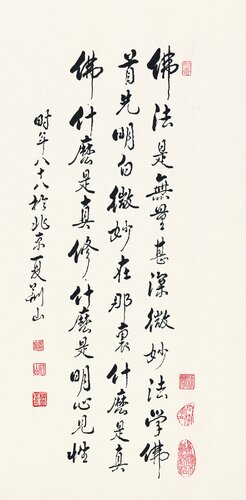 佛法是無量甚深微妙法學佛
首先明白微妙在那裏什麼是真
佛什麼是真修什麼是明心見性
時年八十八於北京夏荊山